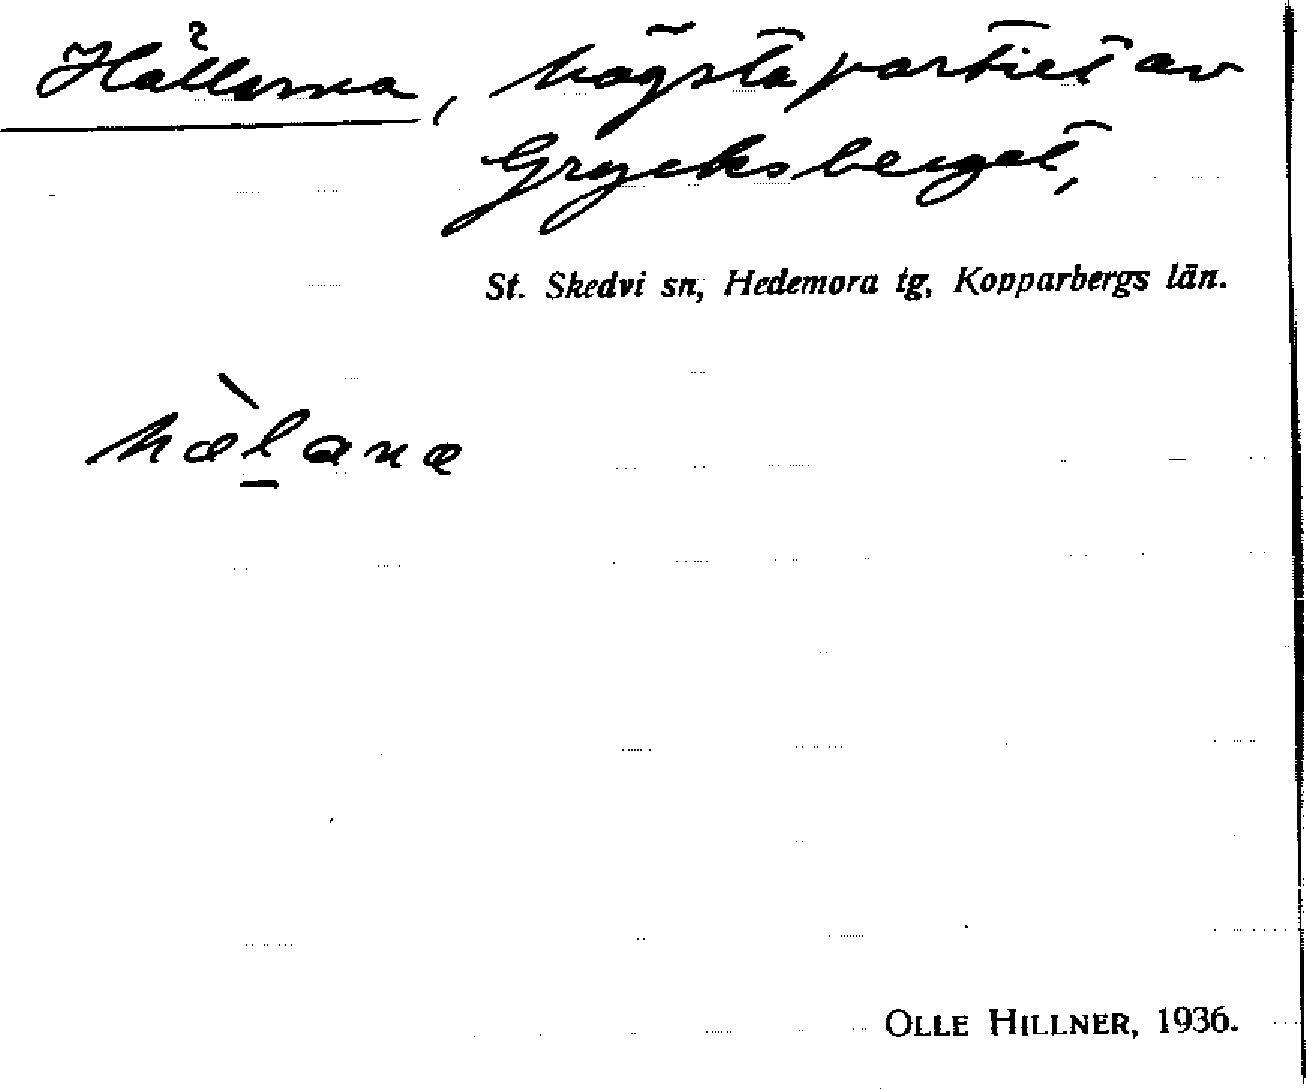 Hällarna, högsta partiet av
Grycksberget,
St. Skedvi sn, Hedemora tg, Kopparbergs län.
hæ̀l̠anæ
OLLE HILLNER, 1936.